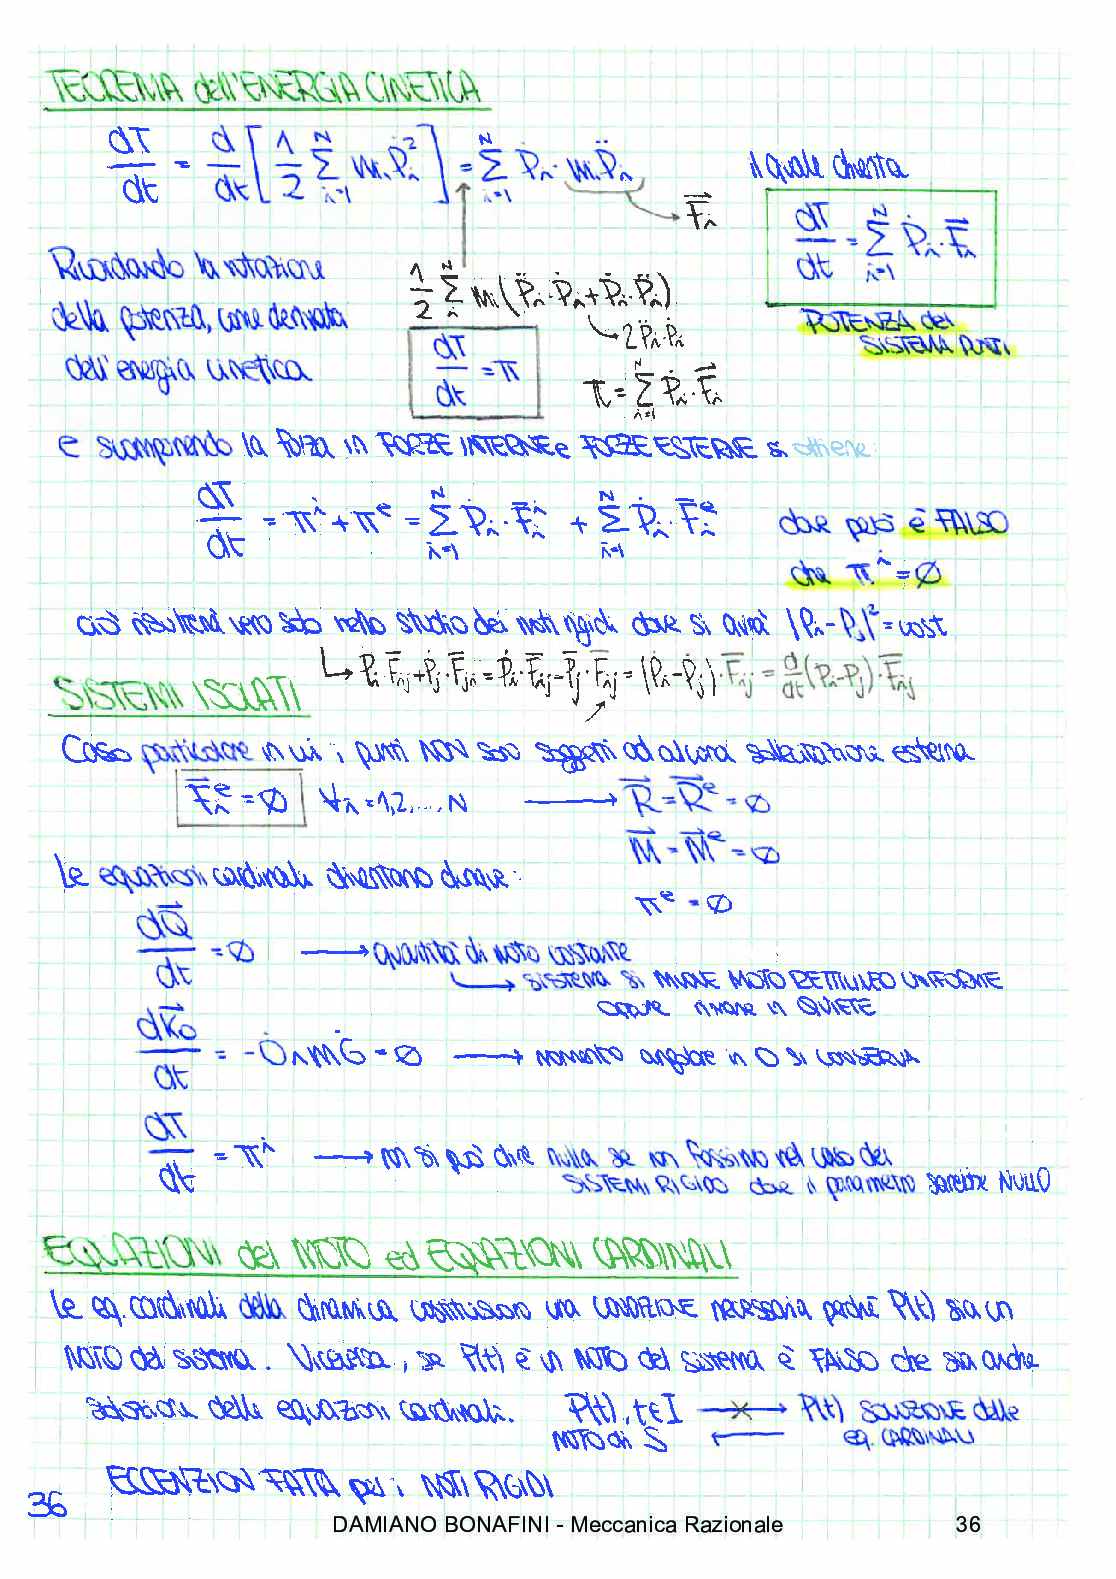 TEOREMA dell'ENERGIA CINETICA
dT/dt = d/dt [ 1/2 Σ_{i=1}^{N} mᵢ Ṗᵢ² ] = Σ_{i=1}^{N} Ṗᵢ · mᵢ P̈ᵢ → F⃗ᵢ
il quale diventa
dT/dt = Σ_{i=1}^{N} Ṗᵢ · F⃗ᵢ
POTENZA del
SISTEMA PUNTI
Ricordando la notazione
della potenza, come derivata
dell'energia cinetica
1/2 Σ_{i}^{N} mᵢ ( P̈ᵢ · Ṗᵢ + Ṗᵢ · P̈ᵢ )
↳ 2 P̈ᵢ · Ṗᵢ
dT/dt = π
π = Σ_{i=1}^{N} Ṗᵢ · F⃗ᵢ
e scomponendo la forza in FORZE INTERNE e FORZE ESTERNE si ottiene
dT/dt = πⁱ + πᵉ = Σ_{i=1}^{N} Ṗᵢ · F̄ᵢⁱ + Σ_{i=1}^{N} Ṗᵢ · F̄ᵢᵉ
dove però è FALSO
che πⁱ = ∅
ciò risulterà vero solo nello studio dei moti rigidi dove si avrà |Pᵢ - Pⱼ|² = cost
↳ Ṗᵢ · F̄ᵢⱼ + Ṗⱼ · F̄ⱼᵢ = Ṗᵢ · F̄ᵢⱼ - Ṗⱼ · F̄ᵢⱼ = (Ṗᵢ - Ṗⱼ) · F̄ᵢⱼ = d/dt (Pᵢ - Pⱼ) · F̄ᵢⱼ
SISTEMI ISOLATI
Caso particolare in cui i punti NON sono soggetti ad alcuna sollecitazione esterna
F⃗ᵢᵉ = ∅ ∀i = 1,2,...,N → R⃗ = R⃗ᵉ = ∅
M⃗ = M⃗ᵉ = ∅
Le equazioni cardinali diventano dunque:
πᵉ = ∅
dQ⃗/dt = ∅ → quantità di moto costante
↳ SISTEMA SI MUOVE MOTO RETTILINEO UNIFORME
OPPURE rimane in QUIETE
dK⃗o/dt = - Ȯ ∧ mĠ = ∅ → momento angolare in O si CONSERVA
dT/dt = πⁱ → non si può dire nulla se non fossimo nel caso dei
SISTEMI RIGIDO dove il parametro sarebbe NULLO
EQUAZIONI del MOTO ed EQUAZIONI CARDINALI
Le eq. cardinali della dinamica costituiscono una CONDIZIONE necessaria perché P(t) sia un
MOTO del sistema. Viceversa, se P(t) è un MOTO del sistema è FALSO che sia anche
soluzione delle equazioni cardinali. P(t), t∈I → P(t) SOLUZIONE delle
MOTO di S ← eq. CARDINALI
ECCENZION FATTA per i MOTI RIGIDI
36
DAMIANO BONAFINI - Meccanica Razionale 36